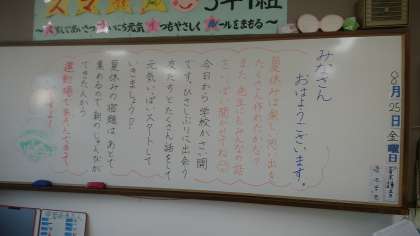 スマ
3年1組
いつも元気
つもやさしく
ルールをまもる~
8月25日金曜日
みなさん
おはようございます。
夏休みは楽しい思い出を
たくさん作れたかな?
また、先生にもみなの話
聞かせてね
今日から学校がさい開
です。ひさしぶりに出会う
友だちとたくさん話をして
元気いっぱいスタートして
いきましょう!?
夏休みの宿題は、あとで
集めるので、朝のじゅんびが
できた人から
運動場であそんできて